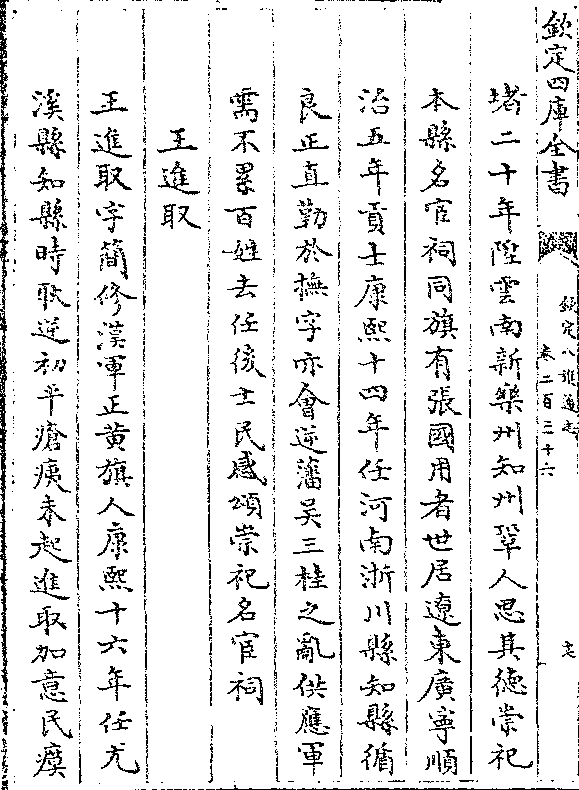 欽定四庫全書
欽定八旗通志
卷二百三十六
十七
堵二十年陞雲南新興州知州鞏人思其德崇祀
本縣名宦祠同旗有張國用者世居遼東廣寧順
治五年貢士康熙十四年任河南淅川縣知縣循
良正直勤於撫字亦會逆藩吴三桂之亂供應軍
需不累百姓去任後士民感頌崇祀名宦祠
王進取
王進取字簡修漢軍正黄旗人康熙十六年任尤
溪縣知縣時耿逆初平瘡痍未起進取加意民瘼